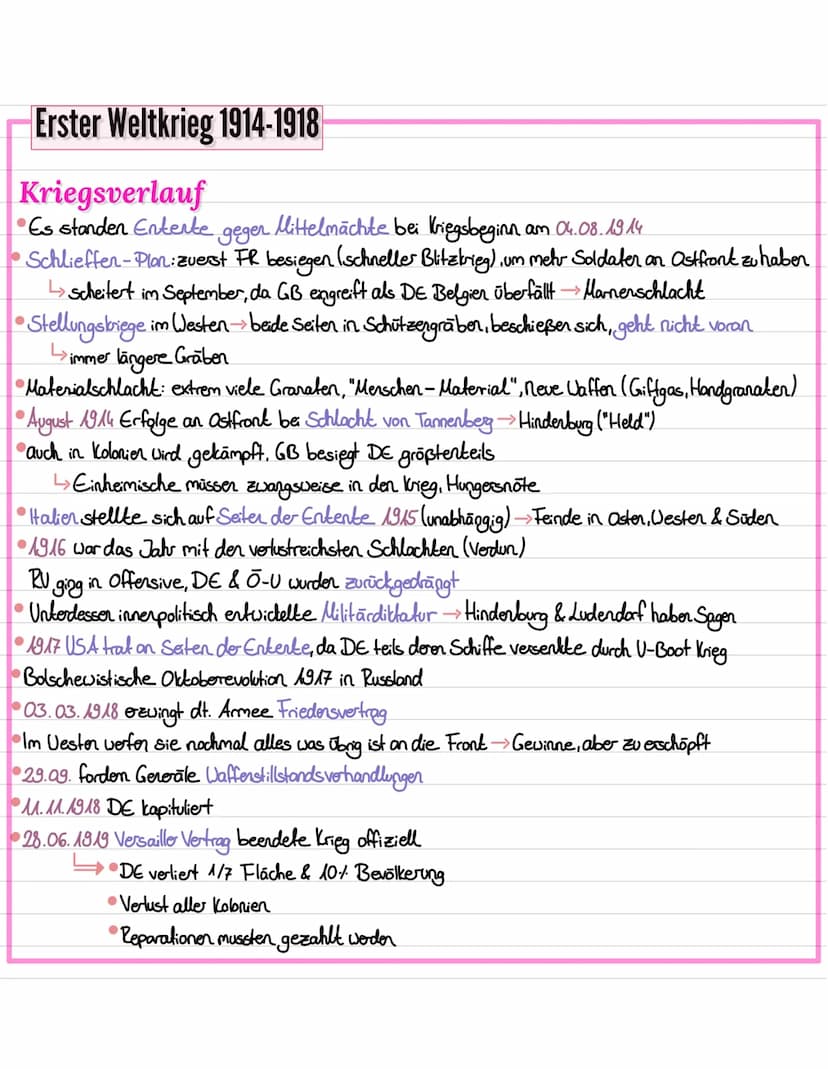 Erster Weltkrieg 1914-1918
Kriegsverlauf
• Es standen Entente gegen Mittelmächte bei Kriegsbeginn am 04.08.1914
• Schlieffen-Plan: zuerst FR besiegen (schneller Blitzkrieg), um mehr Soldaten an Ostfront zu haben
↳ scheitert im September, da GB eingreift als DE Belgien überfällt → Marneschlacht
• Stellungskriege im Westen → beide Seiten in Schützengräben, beschießen sich, geht nicht voran
↳ immer längere Gräben
• Materialschlacht: extrem viele Granaten, "Menschen-Material", neue Waffen (Giftgas, Handgranaten)
• August 1914 Erfolge an Ostfront bei Schlacht von Tannenberg → Hindenburg ("Held")
• auch in Kolonien wird gekämpft, GB besiegt DE größtenteils
↳ Einheimische müssen zwangsweise in den Krieg, Hungersnöte
• Italien stellte sich auf Seiten der Entente 1915 (unabhängig) → Feinde in Osten, Westen & Süden
• 1916 war das Jahr mit den verlustreichsten Schlachten (Verdun)
RU ging in Offensive, DE & Ö-U wurden zurückgedrängt
• Unterdessen innenpolitisch entwickelte Militärdiktatur → Hindenburg & Ludendorf haben Sagen
• 1917 USA trat an Seiten der Entente, da DE teils deren Schiffe versenkte durch U-Boot Krieg
• Bolschewistische Oktoberrevolution 1917 in Russland
• 03.03.1918 erzwingt dt. Armee Friedensvertrag
• Im Westen werfen sie nochmal alles was übrig ist an die Front → Gewinne, aber zu erschöpft
• 29.09. fordern Generäle Waffenstillstandsverhandlungen
• 11.11.1918 DE kapituliert
• 28.06.1919 Versailler Vertrag beendete Krieg offiziell
↳ • DE verliert 1/7 Fläche & 10% Bevölkerung
• Verlust aller Kolonien
• Reparationen mussten gezahlt werden